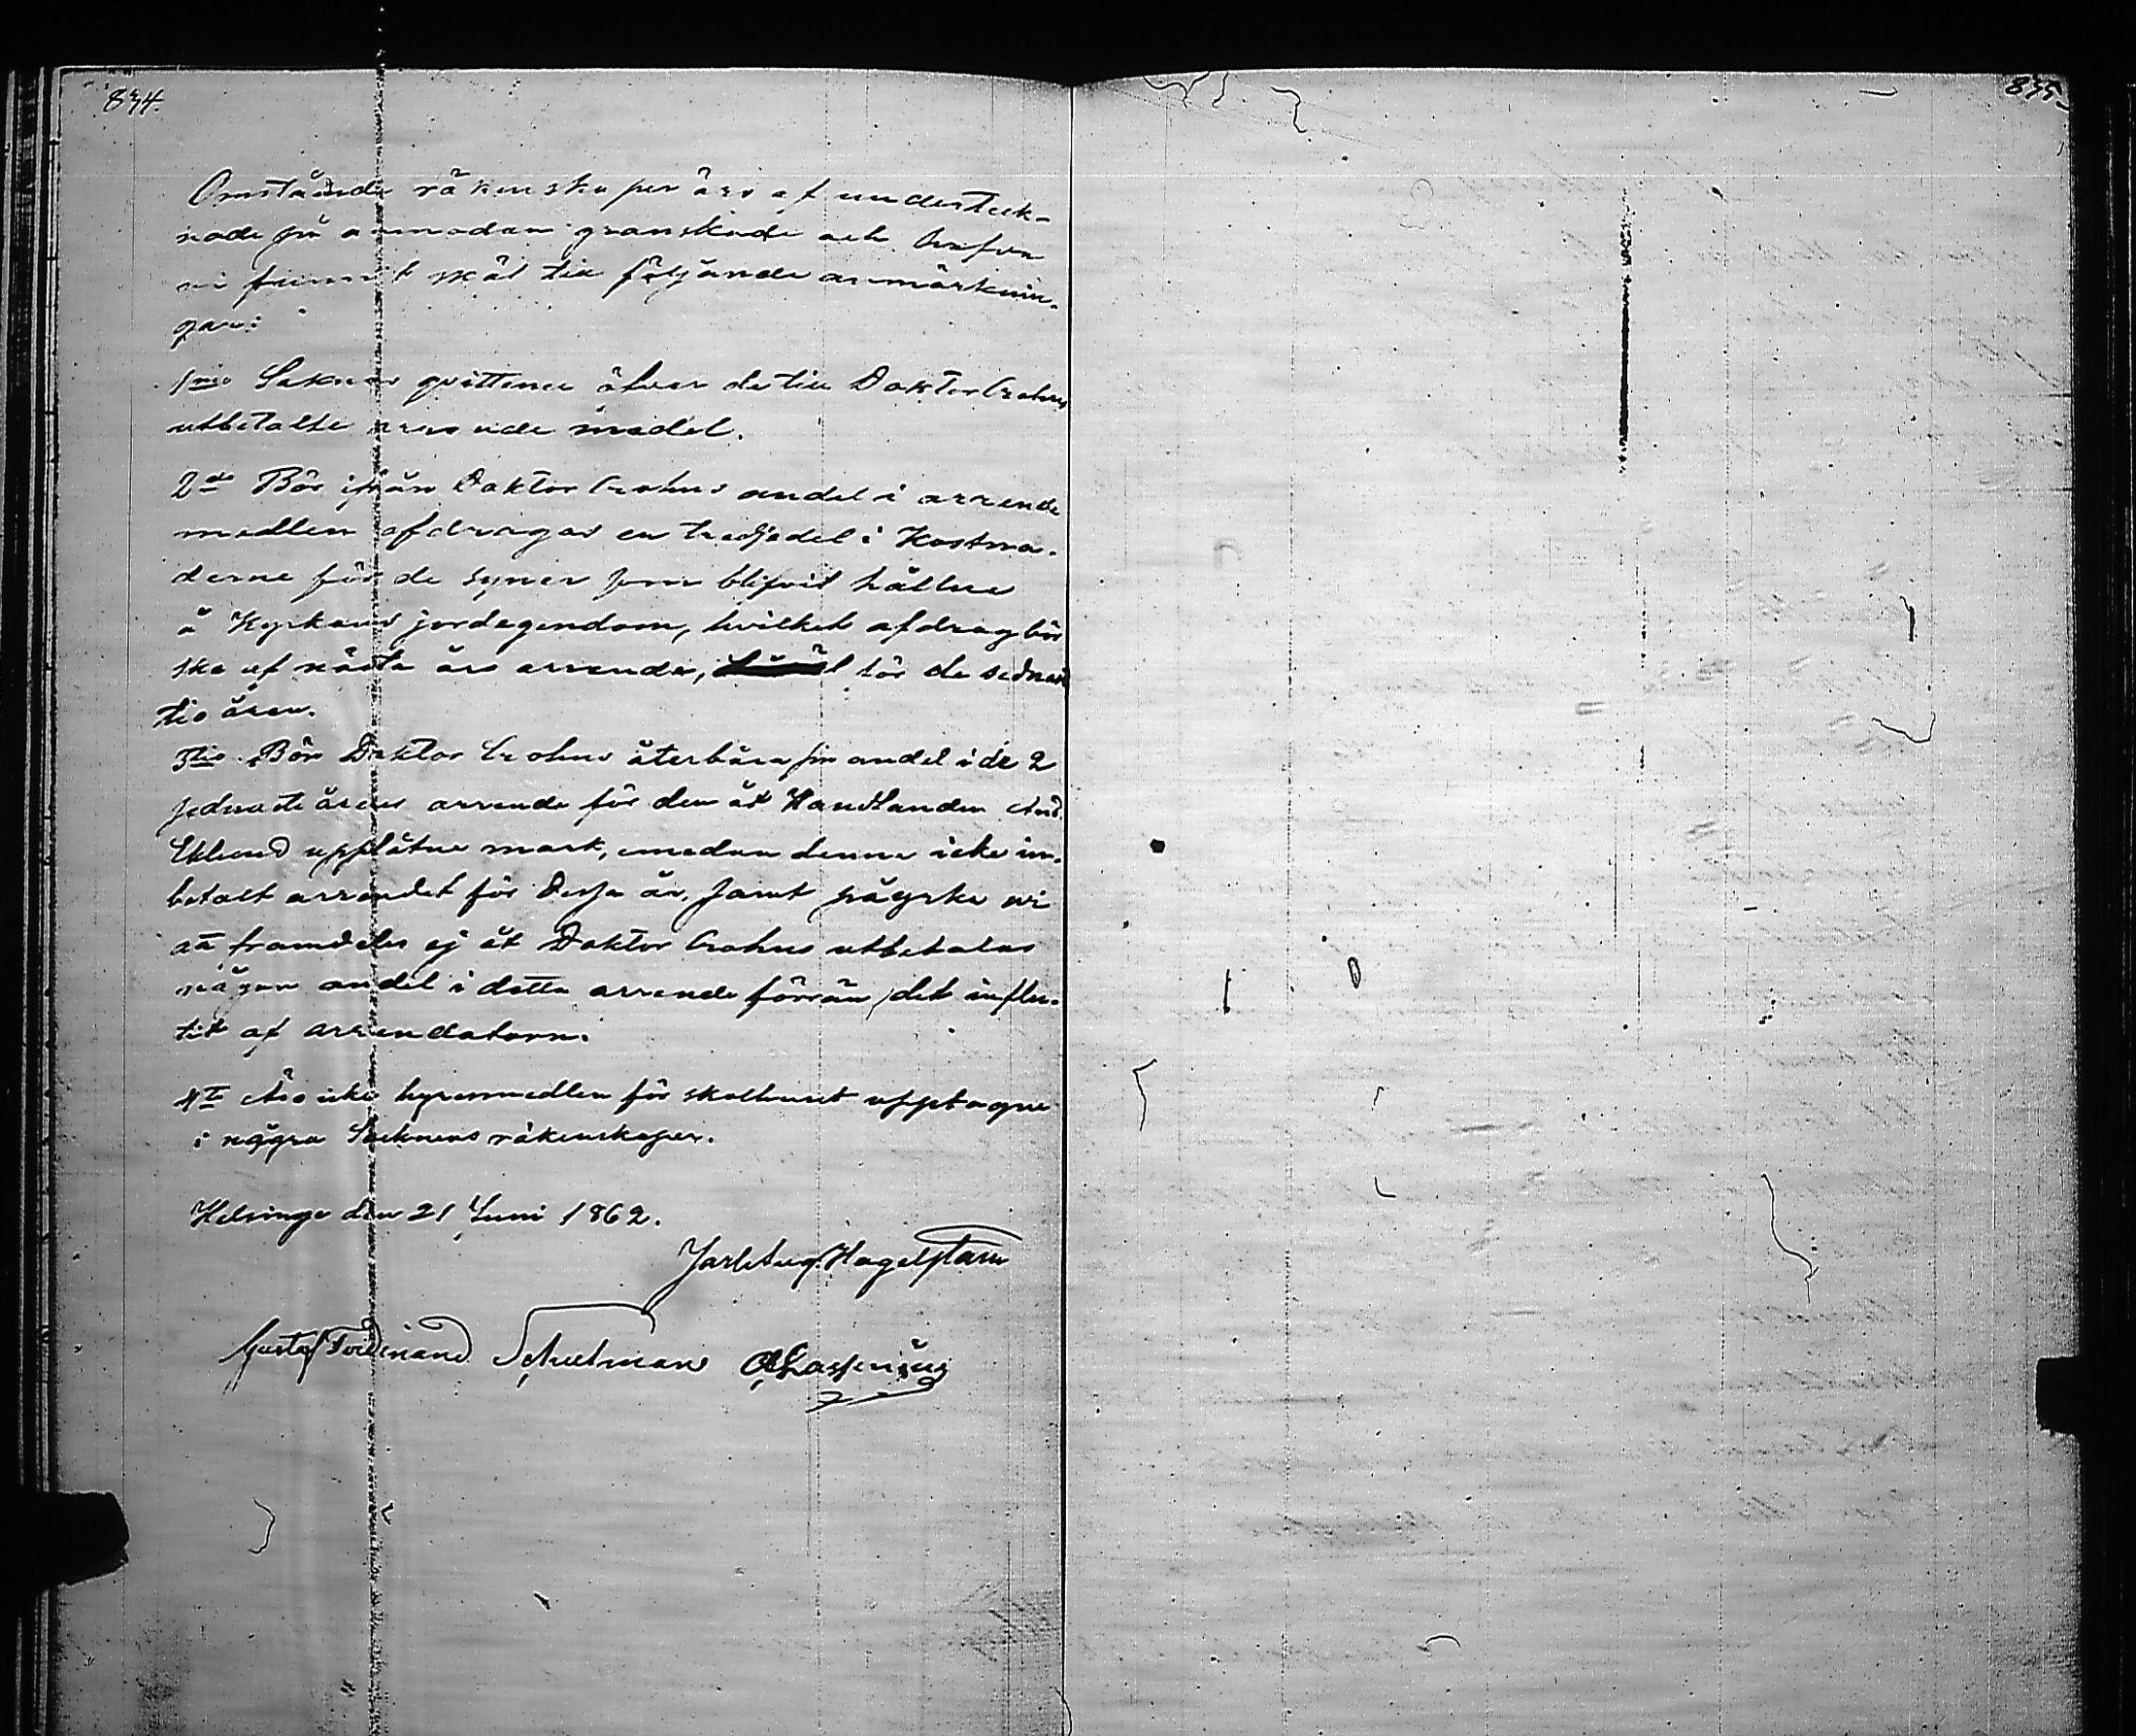 834.
835.
Omstående räkenskaper äro af underteck-
nade på anmodan granskade och hafva
vi funnit skäl till följande anmärknin-
gar:
1mo Saknas qvittence öfver de till Doktor Crohns
utbetalte arrende medel.
2do Bör ifrån Doktor Crohns andel i arrende
medlen afdragas en tredjedel i Kostna-
derne för de syner som blifvit hållne
å Kyrkans jordegendom, hvilket afdrag bör
ske af nästa års arrende, för de sednare
tio åren.
3tio Bör Doktor Crohns återbära sin andel i de 2
sednaste årens arrende för den åt Handlanden And.
Eklund upplåtne mark, emedan denne icke in-
betalt arrendet för dessa år, samt påyrka vi
att framdeles ej åt Doktor Crohns utbetalas
någon andel i detta arrende förrän det influ-
tit af arrendatorn.
4to Äro icke hyresmedlen för skolhuset upptagne
i några Socknens räkenskaper.
Helsinge den 21 Juni 1862.
Jarl Aug. Hagelstam
Gustaf Ferdinand Schulman Lassenius